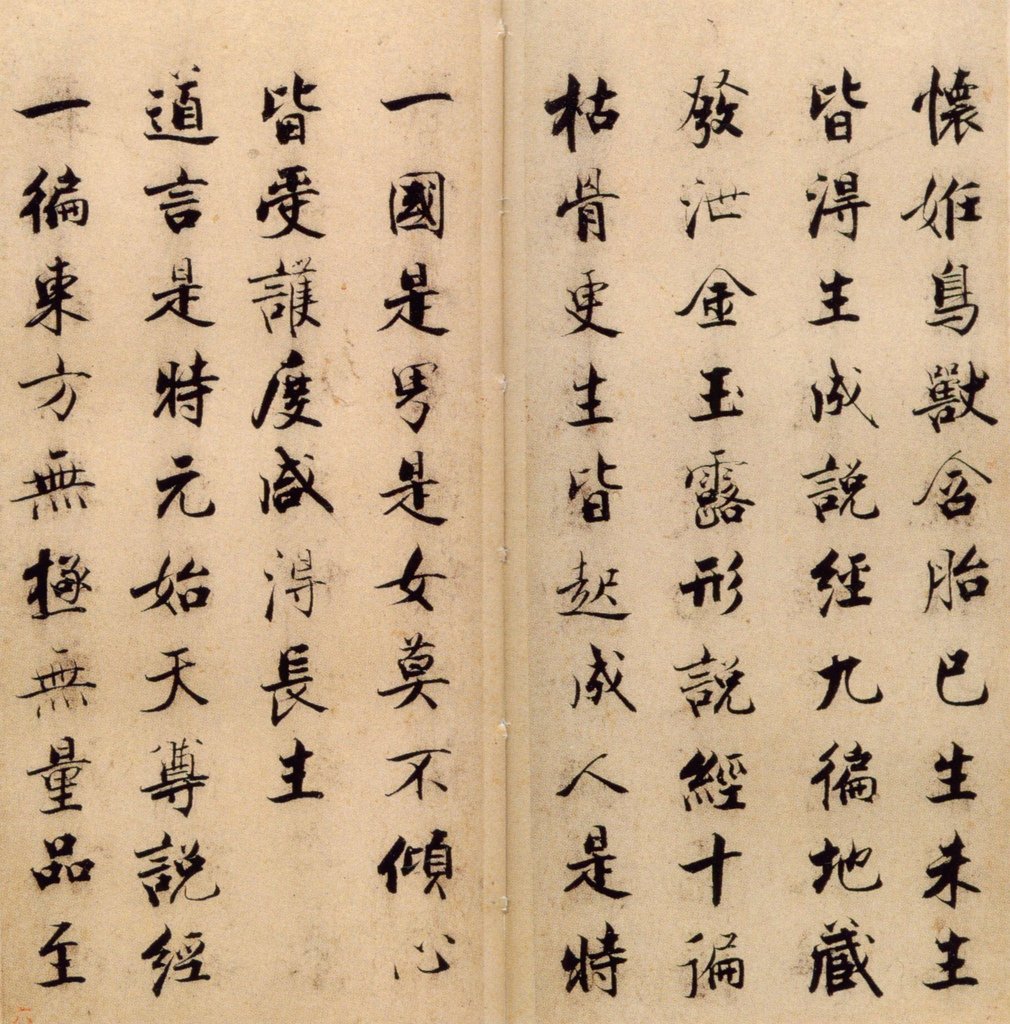 懷姙鳥獸含胎已生未生
皆得生成說經九徧地藏
發泄金玉露形說經十徧
枯骨更生皆起成人是時
一國是男是女莫不傾心
皆受護度咸得長生
道言是時元始天尊說經
一徧東方無極無量品至